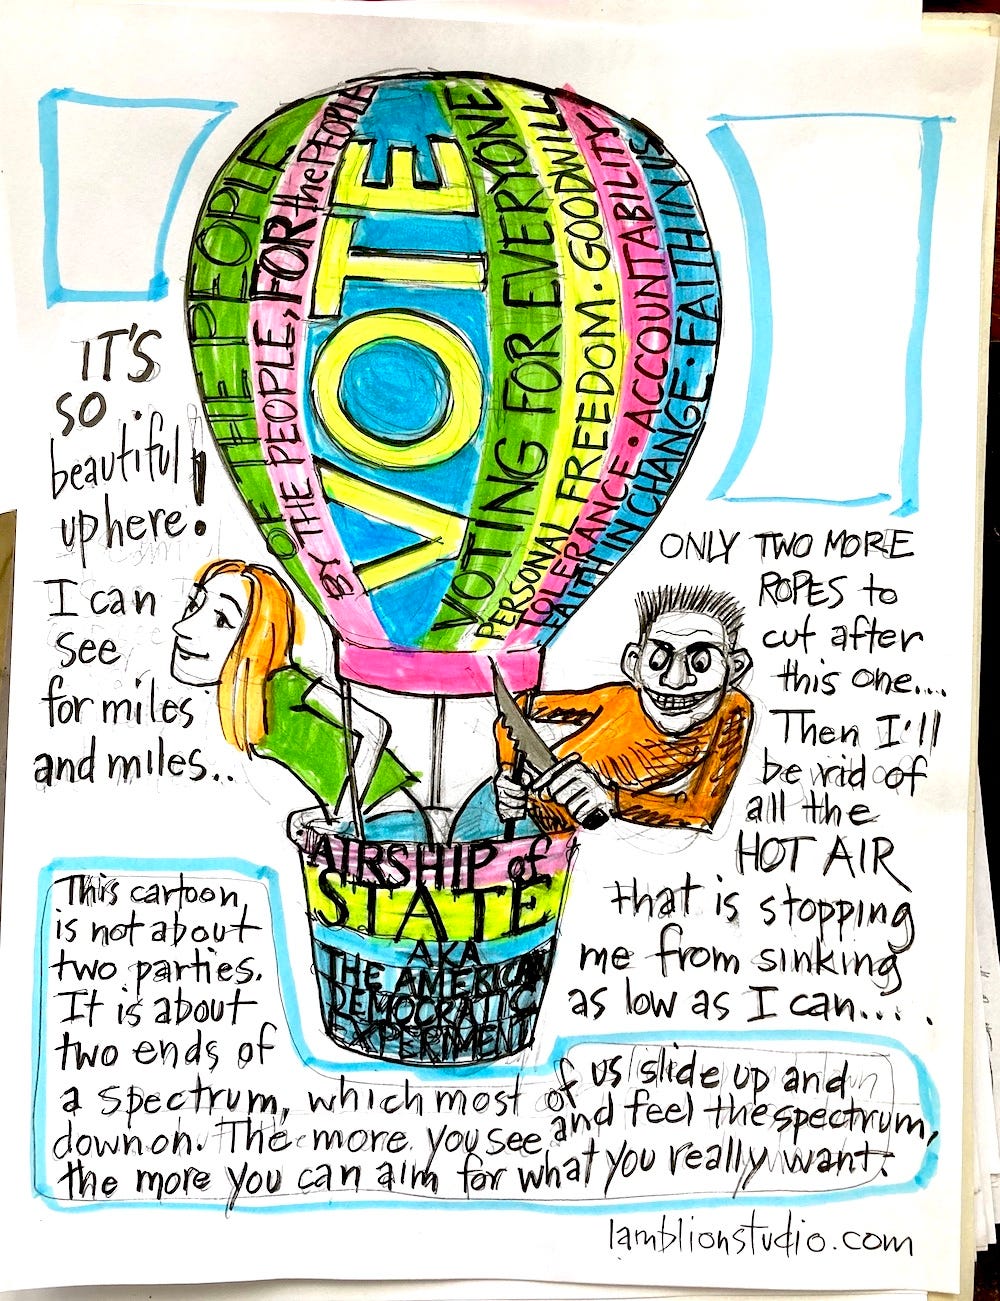 OF THE PEOPLE
BY THE PEOPLE, FOR the PEOPLE
VOTE
VOTING FOR EVERYONE
PERSONAL FREEDOM · GOODWILL
TOLERANCE · ACCOUNTABILITY
FAITH IN CHANGE · FAITH IN US
IT'S
so
beautiful
up here!
I can
see
for miles
and miles..
ONLY TWO MORE
ROPES to
cut after
this one....
Then I'll
be rid of
all the
HOT AIR
that is stopping
me from sinking
as low as I can....
AIRSHIP of
STATE
AKA
THE AMERICAN
DEMOCRATIC
EXPERIMENT
This cartoon
is not about
two parties.
It is about
two ends of
a spectrum, which most of us slide up and
down on. The more you see and feel the spectrum,
the more you can aim for what you really want.
lamblionstudio.com